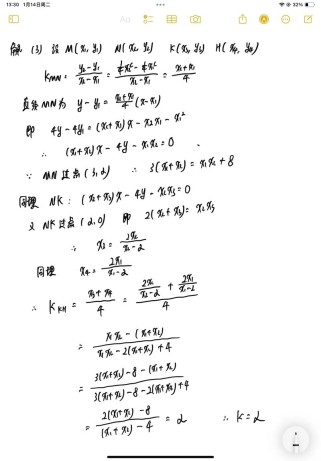 13:30 1月14日周二
32%
Aa
解 (3) 设 M(x₁, y₁) N(x₂, y₂) K(x₃, y₃) H(x₄, y₄)
K_MN = (y₂-y₁)/(x₂-x₁) = (¼x₂²-¼x₁²)/(x₂-x₁) = (x₂+x₁)/4
直线MN为 y-y₁ = (x₂+x₁)/4 (x-x₁)
即 4y-4y₁ = (x₂+x₁)x - x₂x₁ - x₁²
∴ (x₁+x₂)x - 4y - x₁x₂ = 0
∵ MN过点(3,2) ∴ 3(x₁+x₂) = x₁x₂+8
同理 NK: (x₂+x₃)x - 4y - x₂x₃ = 0
又 NK过点(2,0) 即 2(x₂+x₃) = x₂x₃
∴ x₃ = 2x₂/(x₂-2)
同理 x₄ = 2x₁/(x₁-2)
∴ K_KH = (x₃+x₄)/4 = (2x₂/(x₂-2) + 2x₁/(x₁-2))/4
= (x₁x₂-(x₁+x₂))/(x₁x₂-2(x₁+x₂)+4)
= (3(x₁+x₂)-8-(x₁+x₂))/(3(x₁+x₂)-8-2(x₁+x₂)+4)
= (2(x₁+x₂)-8)/((x₁+x₂)-4) = 2 ∴ k=2